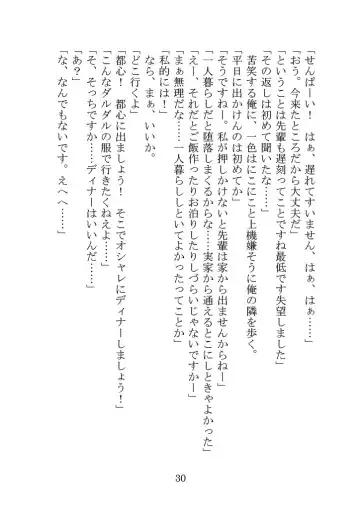 「せんぱーい！　はぁ、遅れてすいません、はぁ、はぁ……」
「おう。今来たところだから大丈夫だ」
「ということは先輩も遅刻ってことですね最低です失望しました」
「その返しは初めて聞いたな……」
苦笑する俺に、一色はにこにこと上機嫌そうに俺の隣を歩く。
「平日に出かけんのは初めてか」
「そうですねー。私が押しかけないと先輩は家から出ませんからねー」
「一人暮らしだと堕落しまくるからな……実家から通えるとこにしときゃよかった」
「えー、それだとご飯作ったりお泊りしたりしづらいじゃないですかー」
「まぁ無理だな……一人暮らししといてよかったってことか」
「私的には！」
なら、まぁ、いいか。
「どこ行くよ」
「都心！　都心に出ましょう！　そこでオシャレにディナーしましょう！」
「こんなダルダルの服で行きたくねえよ……」
「そ、そっちですか……ディナーはいいんだ……」
「あ？」
「な、なんでもないです。えへへ……」
30